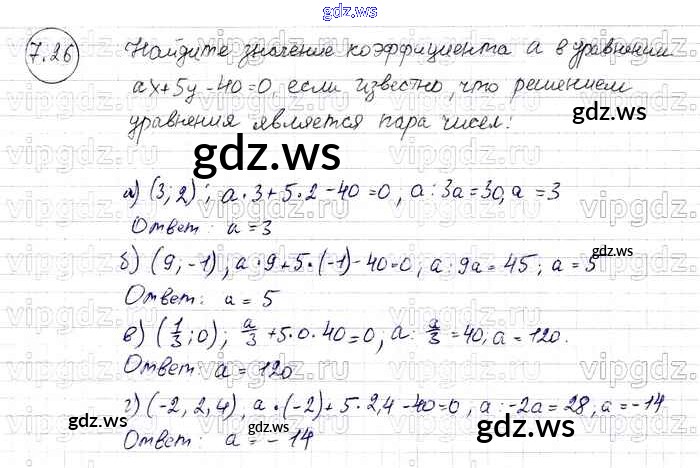 gdz.ws
7.26
Найдите значение коэффициента а в уравнении
ax+5y-40=0, если известно, что решением
уравнения является пара чисел:
gdz.ws
а) (3; 2); a·3+5·2-40=0, a: 3a=30, a=3
Ответ: a=3
gdz.ws
б) (9; -1), a·9+5·(-1)-40=0, a: 9a=45; a=5
Ответ: a=5
в) (1/3; 0); a/3+5·0·40=0, a: a/3=40, a=120.
Ответ: a=120
gdz.ws
г) (-2, 2,4), a·(-2)+5·2,4-40=0, a: -2a=28, a=-14
Ответ: a=-14
gdz.ws
gdz.ws
vipgdz.ws